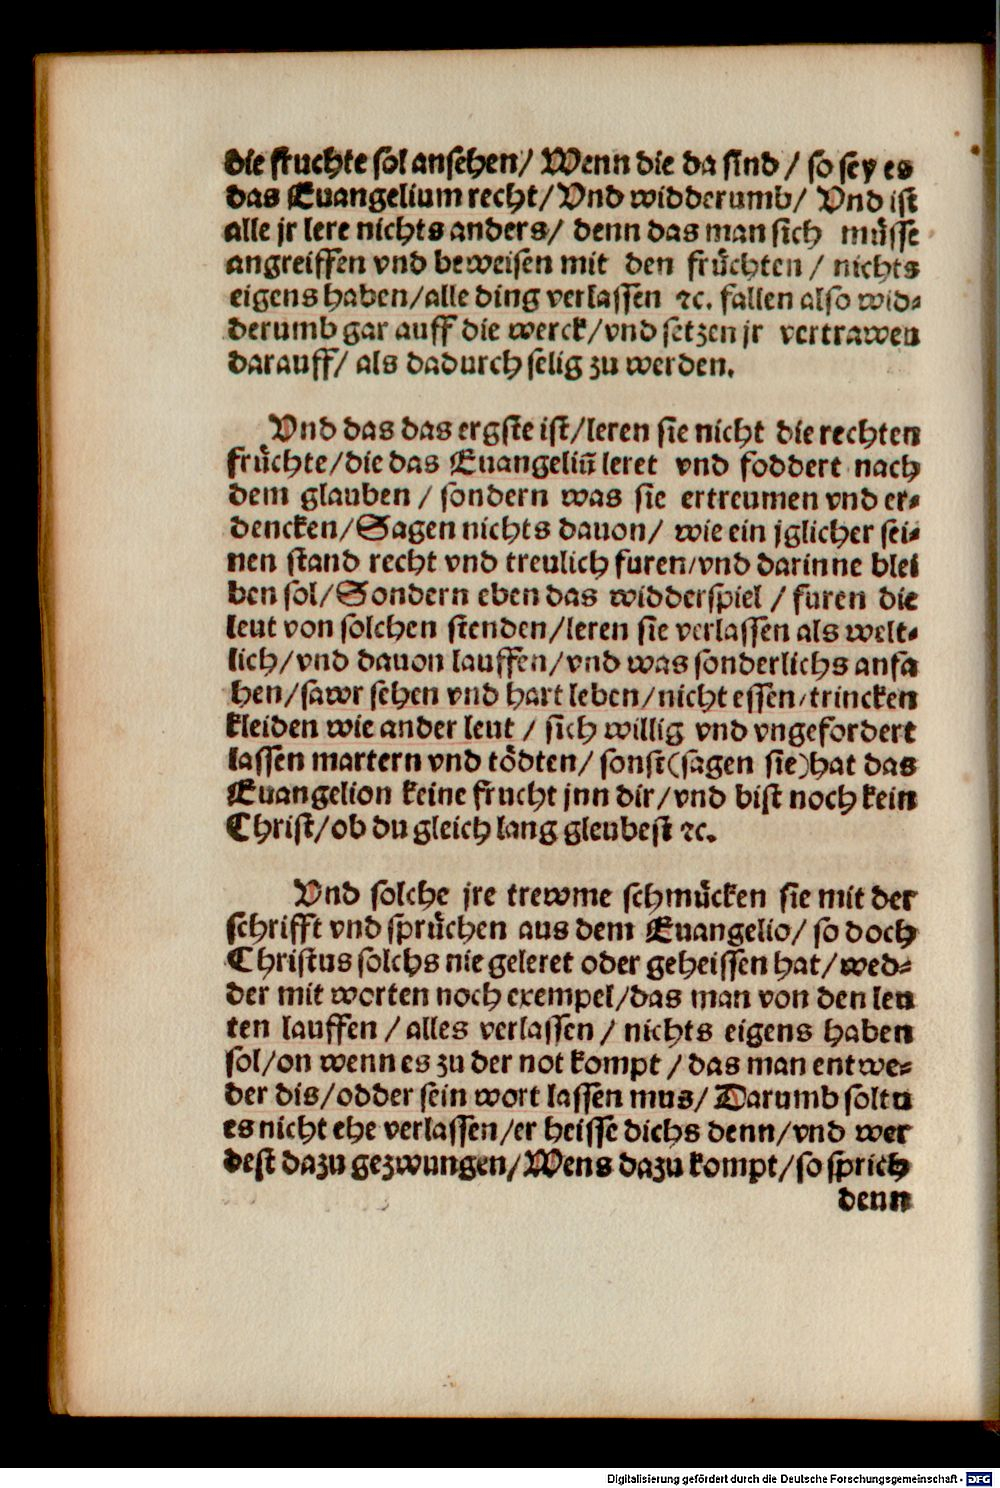 die fruchte sol ansehen/ Wenn die da sind / so sey es
das Euangelium recht/ Vnd widderumb/ Vnd ist
alle jr lere nichts anders/ denn das man sich müsse
angreiffen vnd beweisen mit den früchten / nichts
eigens haben/alle ding verlassen ⁊c. fallen also wid⸗
derumb gar auff die werck/vnd setzen jr vertrawen
darauff/ als dadurch selig zu werden.
Vnd das das ergste ist/leren sie nicht die rechten
früchte/die das Euangeliū leret vnd foddert nach
dem glauben / sondern was sie ertreumen vnd er⸗
dencken/Sagen nichts dauon/ wie ein jglicher sei⸗
nen stand recht vnd treulich furen/vnd darinne blei
ben sol/Sondern eben das widderspiel / furen die
leut von solchen stenden/leren sie verlassen als welt⸗
lich/vnd dauon lauffen/vnd was sonderlichs anfa
hen/sawr sehen vnd hart leben/nicht essen/trincken
kleiden wie ander leut / sich willig vnd vngefordert
lassen martern vnd tödten/ sonst(sagen sie)hat das
Euangelion keine frucht jnn dir/vnd bist noch kein
Christ/ob du gleich lang gleubest ⁊c.
Vnd solche jre trewme schmücken sie mit der
schrifft vnd sprüchen aus dem Euangelio/ so doch
Christus solchs nie geleret oder geheissen hat/wed⸗
der mit worten noch exempel/das man von den leu
ten lauffen / alles verlassen / nichts eigens haben
sol/on wenn es zu der not kompt / das man entwe⸗
der dis/odder sein wort lassen mus/ Darumb soltu
es nicht ehe verlassen/er heisse dichs denn/vnd wer
dest dazu gezwungen/Wens dazu kompt/so sprich
denn
Digitalisierung gefördert durch die Deutsche Forschungsgemeinschaft - DFG